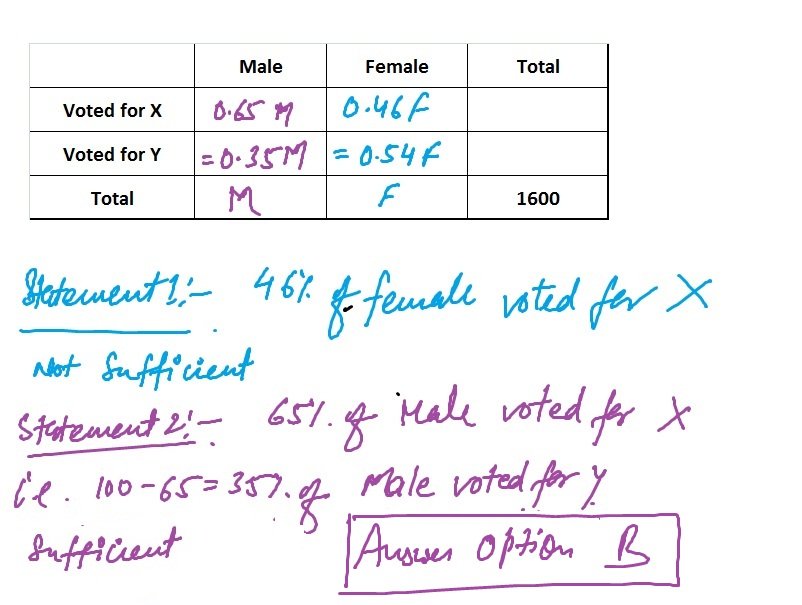 Male Female Total
Voted for X 0.65 M 0.46 F
Voted for Y =0.35M = 0.54 F
Total M F 1600
Statement 1:- 46% of female voted for X
Not Sufficient
Statement 2:- 65% of Male voted for X
i.e. 100-65=35% of Male voted for Y
Sufficient
Answer Option B